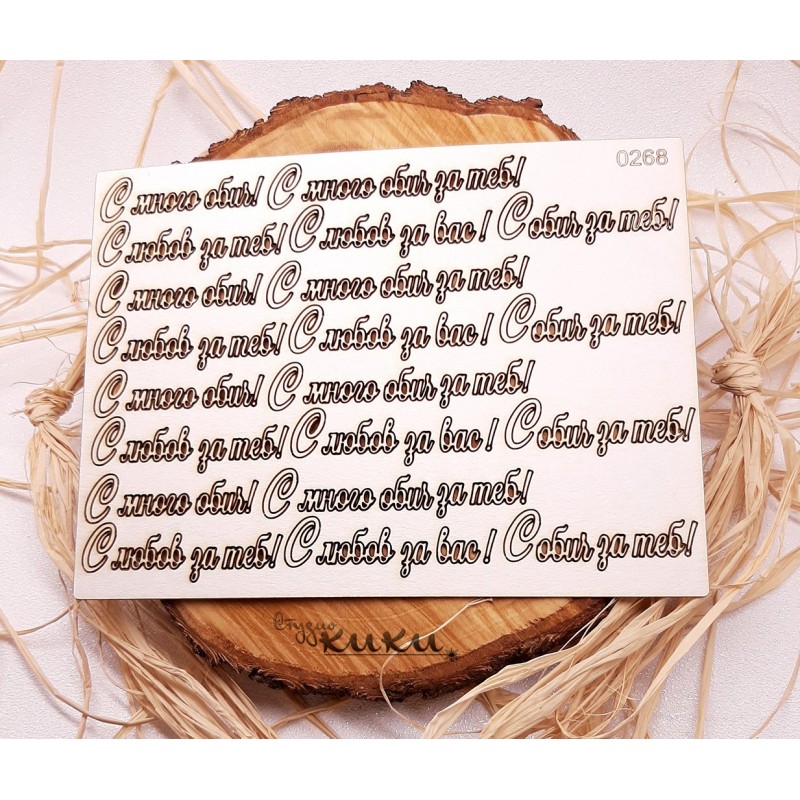 0268
С много обич! С много обич за теб!
С любов за теб! С любов за вас! С обич за теб!
С много обич! С много обич за теб!
С любов за теб! С любов за вас! С обич за теб!
С много обич! С много обич за теб!
С любов за теб! С любов за вас! С обич за теб!
С много обич! С много обич за теб!
С любов за теб! С любов за вас! С обич за теб!
Студио
КиКи